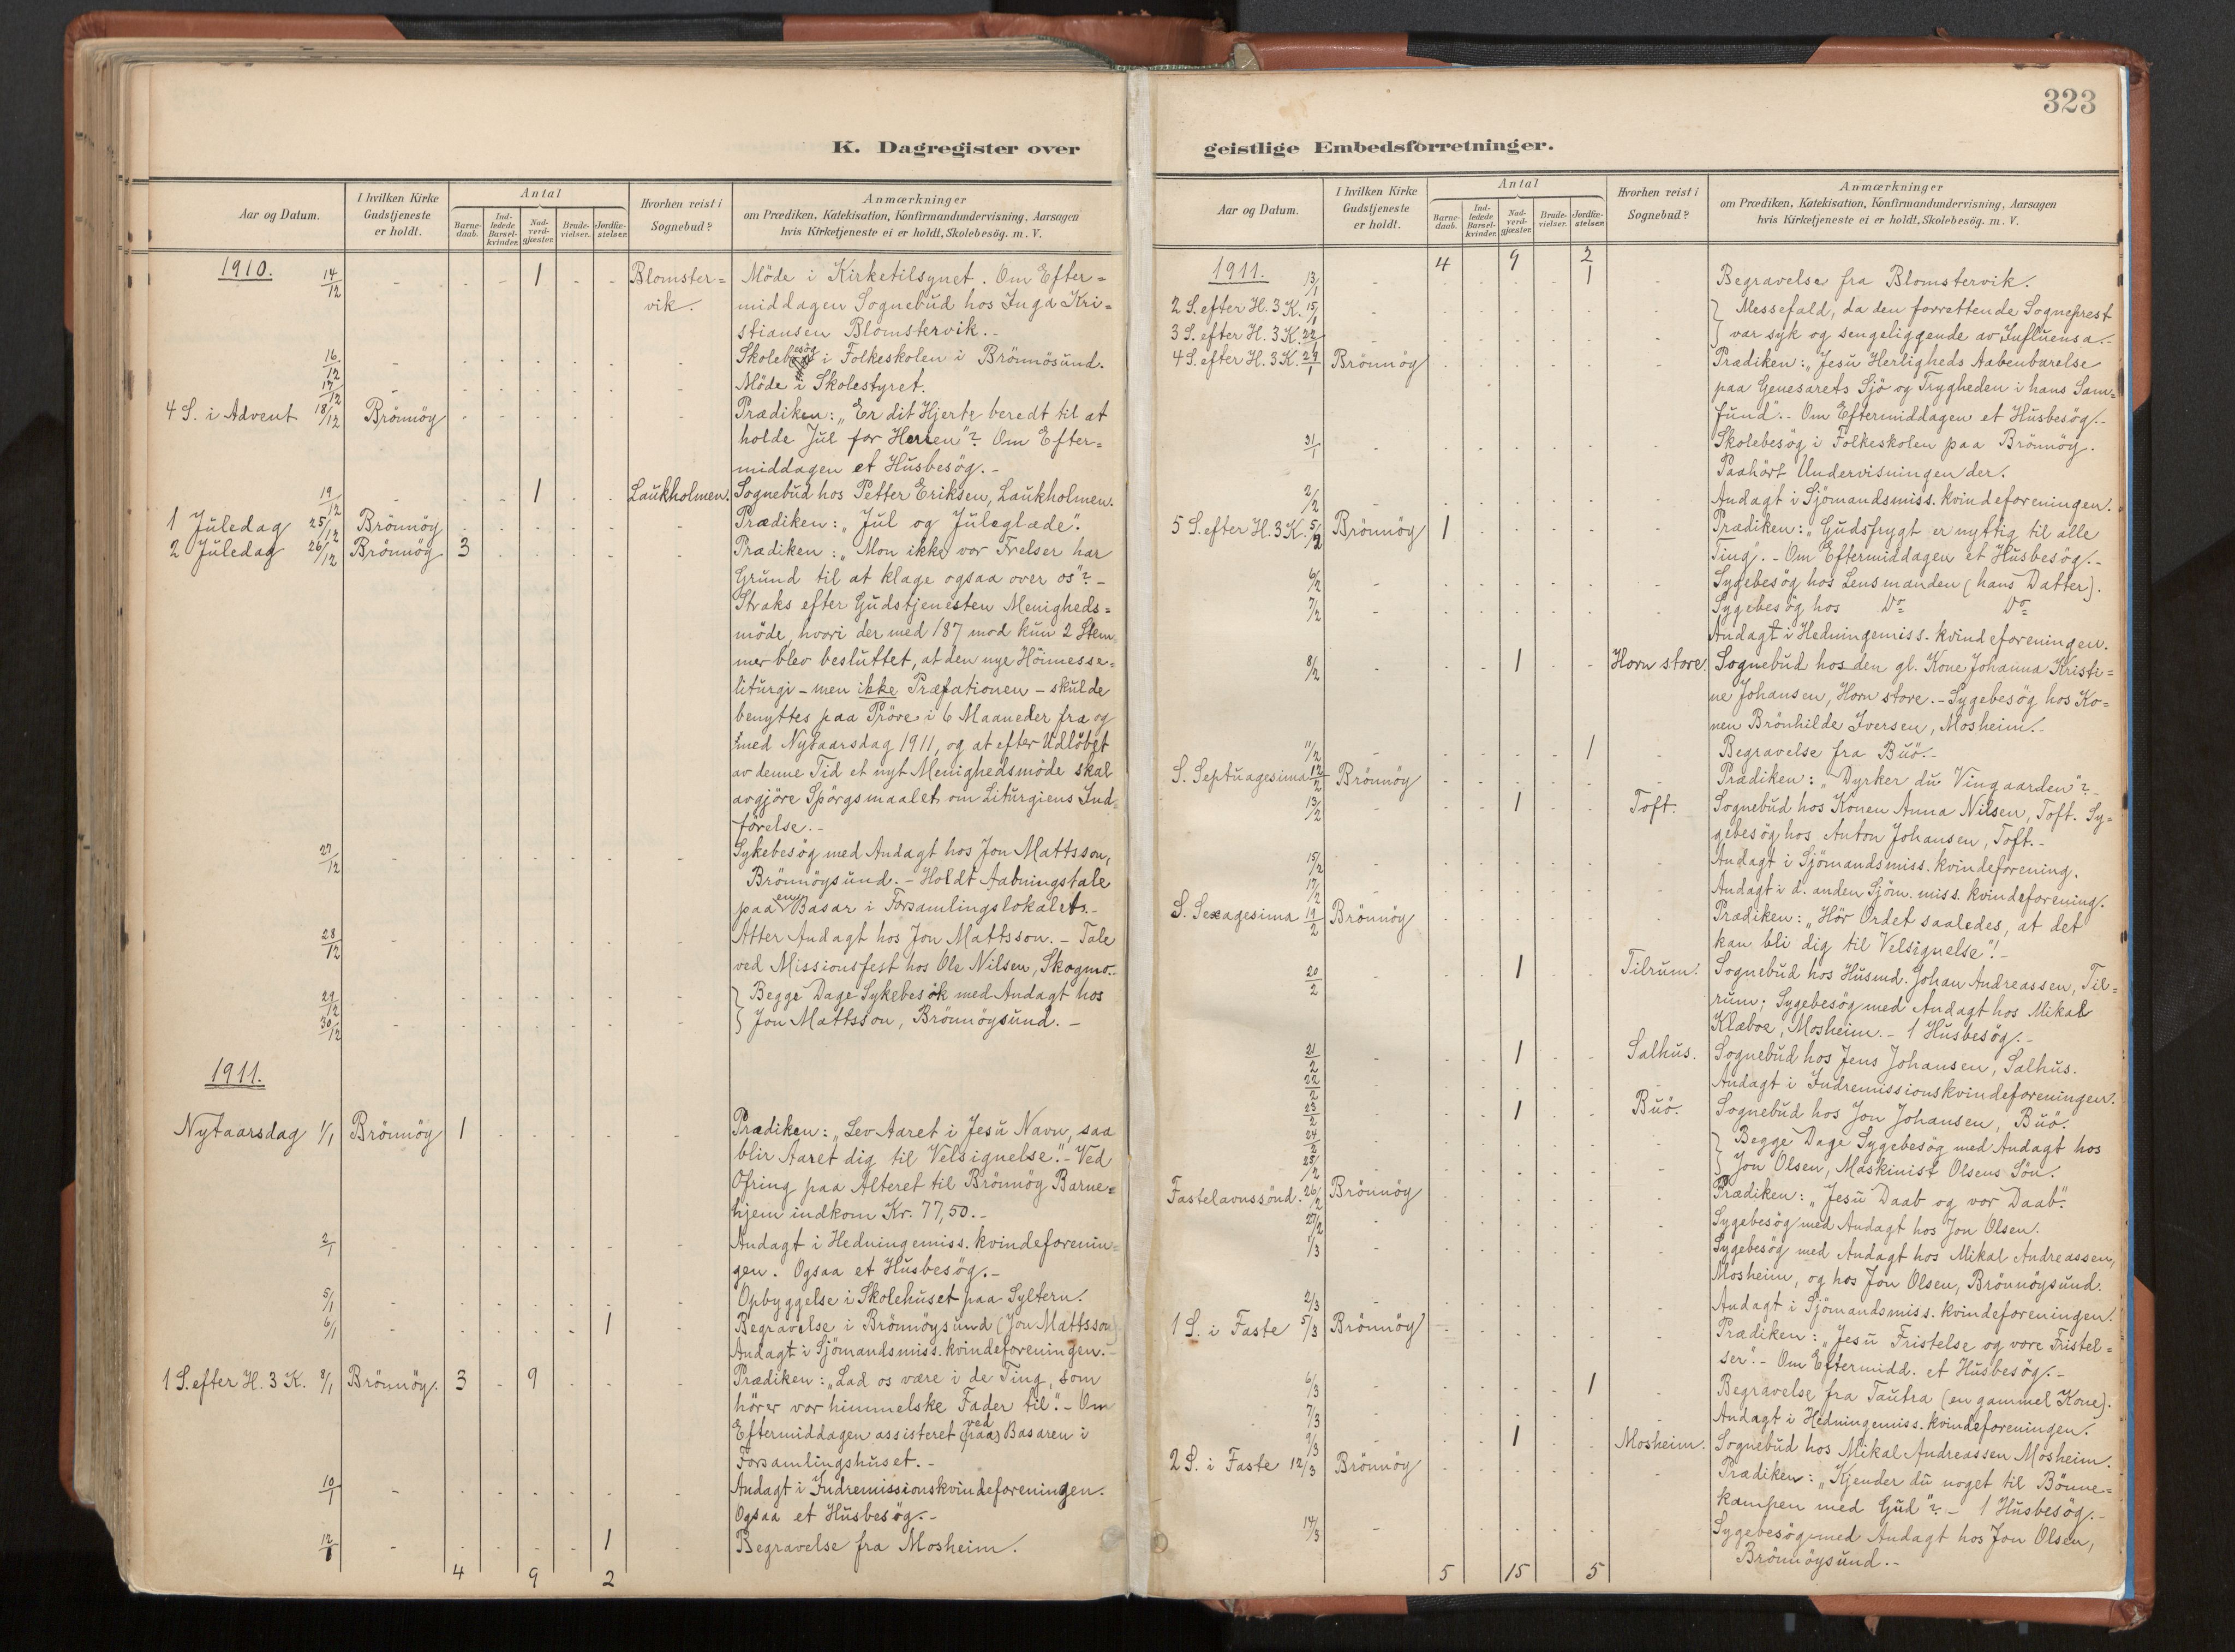 323
K. Dagregister over
Aar og Datum.
I hvilken Kirke
Gudstjeneste
er holdt.
Antal
Barne-
daab.
Ind-
ledede
Barsel-
kvinder.
Nad-
verd-
gjæster.
Brude-
vielser.
Jordfæ-
stelser.
Hvorhen reist i
Sognebud?
Anmærkninger
om Prædiken, Katekisation, Konfirmandundervisning, Aarsagen
hvis Kirketjeneste ei er holdt, Skolebesøg. m. V.
1910. 14/12 - - - - 1 - - Blomster= Möde i Kirketilsynet. Om Efter=
vik. middagen Sognebud hos Inga Kri=
stiansen Blomstervik.-
16/12 - - - - - - - - Skolebesøg i Folkeskolen i Brönnösund.
17/12 - - - - - - - Möde i Skolestyret.
4 S. i Advent 18/12 Brönnöy - - - - - - Prædiken: „Er dit Hjerte beredt til at
holde Jul for Herren"? Om Efter=
middagen et Husbesög.-
19/12 - - - 1 - - Laukholmen. Sognebud hos Petter Eriksen, Laukholmen.
1 Juledag 25/12 Brönnöy - - - - - - Prædiken: „Jul og Juleglæde".
2 Juledag 26/12 Brönnöy 3 - - - - - Prædiken: „Mon ikke vor Frelser har
Grund til at klage ogsaa over os"?-
Straks efter Gudstjenesten Menigheds=
möde, hvori der med 187 mod kun 2 Stem
mer blev besluttet, at den nye Höimesse=
liturgi - men ikke Præfationen - skulde
benyttes paa Pröve i 6 Maaneder fra og
med Nytaarsdag 1911, og at efter Udlöbet
av denne Tid et nyt Menighedsmöde skal
avgjöre Spörgsmaalet om Liturgiens Ind=
förelse.-
27/12 - - - - - - - Sykebesög med Andagt hos Jon Mattsson,
Brönnöysund. - Holdt Aabningstale
paa en Basar i Forsamlingslokalet.-
28/12 - - - - - - - Atter Andagt hos Jon Mattsson. - Tale
ved Missionsfest hos Ole Nilsen, Skogmo.-
29/12 - - - - - - - Begge Dage Sykebesök med Andagt hos
30/12 - - - - - - - Jon Mattsson, Brönnöysund. -
1911.
Nytaarsdag 1/1 Brönnöy 1 - - - - Prædiken: „Lev Aaret i Jesu Navn, saa
blir Aaret dig til Velsignelse." - Ved
Ofring paa Alteret til Brönnöy Barne=
hjem indkom Kr. 77,50.-
2/1 - - - - - - - Andagt i Hedningemiss. kvindeforenin=
gen. Ogsaa et Husbesög.-
5/1 - - - - - - - Opbyggelse i Skolehuset paa Syltern.
6/1 - - - - - 1 - Begravelse i Brönnöysund (Jon Mattsson)
Andagt i Sjömandsmiss. kvindeforeningen.-
1 S. efter H. 3 K. 8/1 Brönnöy. 3 - 9 - - - Prædiken: „Lad os være i de Ting, som
hörer vor himmelske Fader til." - Om
Eftermiddagen assisteret (paa) ved Basaren i
Forsamlingshuset.-
10/1 - - - - - - - Andagt i Indremissionskvindeforeningen.
Ogsaa et Husbesög.-
12/1 - - - - - 1 - Begravelse fra Mosheim.
4 9 2
geistlige Embedsforretninger.
Aar og Datum.
I hvilken Kirke
Gudstjeneste
er holdt.
Antal
Barne-
daab.
Ind-
ledede
Barsel-
kvinder.
Nad-
verd-
gjæster.
Brude-
vielser.
Jordfæ-
stelser.
Hvorhen reist i
Sognebud?
Anmærkninger
om Prædiken, Katekisation, Konfirmandundervisning, Aarsagen
hvis Kirketjeneste ei er holdt, Skolebesøg. m. V.
4 9 2
1911. 13/1 - - - - - 1 - Begravelse fra Blomstervik.
2 S. efter H. 3 K. 15/1 - - - - - - - Messefald, da den forrettende Sogneprest
3 S. efter H. 3 K. 22/1 - - - - - - - var syk og sengeliggende av Influensa.-
4 S. efter H. 3 K. 29/1 Brönnöy - - - - - - Prædiken: „Jesu Herligheds Aabenbarelse
paa Genesarets Sjö og Trygheden i hans Sam=
fund".- Om Eftermiddagen et Husbesög.-
31/1 - - - - - - - Skolebesög i Folkeskolen paa Brönnöy.
Paahört Undervisningen der.
2/2 - - - - - - - Andagt i Sjömandsmiss. kvindeforeningen.
5 S. efter H. 3 K. 5/2 Brönnöy 1 - - - - - Prædiken: „Gudsfrygt er nyttig til alle
Ting".- Om Eftermiddagen et Husbesög.-
6/2 - - - - - - - Sygebesög hos Lensmanden (hans Datter).
7/2 - - - - - - - Sygebesög hos Do Do
Andagt i Hedningemiss. kvindeforeningen.
8/2 - - - 1 - - Horn store. Sognebud hos den gl. Kone Johanna Kristi=
ne Johansen, Horn store. - Sygebesög hos Ko=
nen Brönhilde Iversen, Mosheim.-
11/2 - - - - - 1 - Begravelse fra Buö.-
S. Septuagesima 12/2 Brönnöy - - - - - - Prædiken: „Dyrker du Vingaarden"?-
13/2 - - - 1 - - Toft. Sognebud hos Konen Anna Nilsen, Toft. Sy=
gebesög hos Anton Johansen, Toft.-
15/2 - - - - - - - Andagt i Sjömandsmiss. kvindeforening.
17/2 - - - - - - - Andagt i d. anden Sjöm. miss. kvindeforening.
S. Sexagesima 19/2 Brönnöy - - - - - - Prædiken: „Hör Ordet saaledes, at det
kan bli dig til Velsignelse"!-
20/2 - - - 1 - - Tilrum. Sognebud hos Husmd. Johan Andreassen, Til=
rum; Sygebesög med Andagt hos Mikal
Klæboe, Mosheim. - 1 Husbesög.-
21/2 - - - 1 - - Salhus. Sognebud hos Jens Johansen, Salhus.
22/2 - - - - - - - Andagt i Indremissionskvindeforeningen.
23/2 - - - 1 - - Buö. Sognebud hos Jon Johansen, Buö.
24/2 - - - - - - - Begge Dage Sygebesög med Andagt hos
25/2 - - - - - - - Jon Olsen, Maskinist Olsens Sön.
Fastelavnssönd. 26/2 Brönnöy - - - - - - Prædiken: „Jesu Daab og vor Daab".
27/2 - - - - - - - Sygebesög med Andagt hos Jon Olsen.
1/3 - - - - - - - Sygebesög med Andagt hos Mikal Andreassen,
Mosheim, og hos Jon Olsen, Brönnöysund.
2/3 - - - - - - - Andagt i Sjömandsmiss. kvindeforeningen.
1 S. i Faste 5/3 Brönnöy - - - - - - Prædiken: „Jesu Fristelse og vore Fristel=
ser".- Om Eftermidd. et Husbesög.-
6/3 - - - - - 1 - Begravelse fra Tautra (en gammel Kone).
7/3 - - - - - - - Andagt i Hedningemiss. kvindeforeningen.
9/3 - - - 1 - - Mosheim. Sognebud hos Mikal Andreassen Mosheim.
2 S. i Faste 12/3 Brönnöy - - - - - - Prædiken: „Kjender du noget til Bönne=
kampen med Gud"? - 1 Husbesög.-
14/3 - - - - - - Sygebesög med Andagt hos Jon Olsen,
Brönnöysund.-
5 15 5